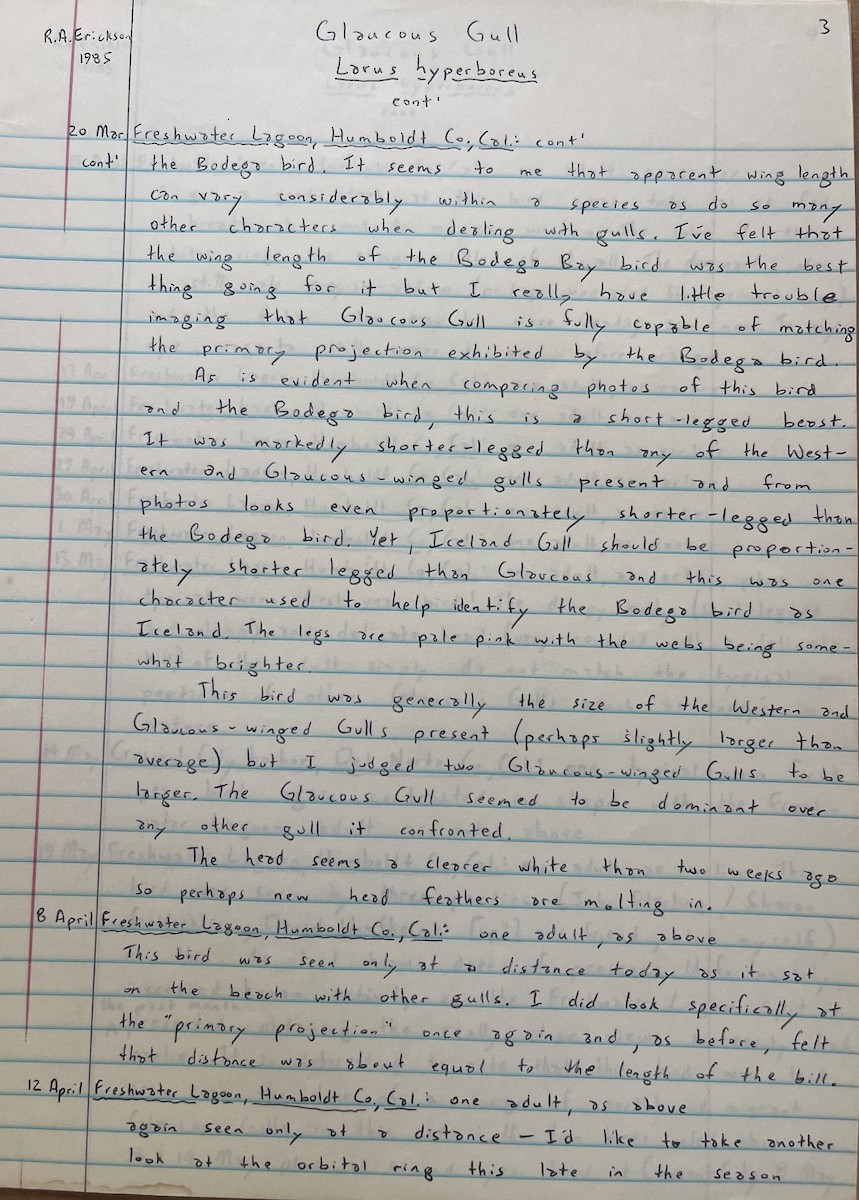 R.A. Erickson
1985
Glaucous Gull
3
Larus hyperboreus
cont'
20 Mar Freshwater Lagoon, Humboldt Co., Cal.: cont'
cont' the Bodega bird. It seems to me that apparent wing length
can vary considerably within a species as do so many
other characters when dealing with gulls. I've felt that
the wing length of the Bodega Bay bird was the best
thing going for it but I really have little trouble
imaging that Glaucous Gull is fully capable of matching
the primary projection exhibited by the Bodega bird.
As is evident when comparing photos of this bird
and the Bodega bird, this is a short-legged beast.
It was markedly shorter-legged than any of the West-
ern and Glaucous-winged gulls present and from
photos looks even proportionately shorter-legged than
the Bodega bird. Yet, Iceland Gull should be proportion-
ately shorter legged than Glaucous and this was one
character used to help identify the Bodega bird as
Iceland. The legs are pale pink with the webs being some-
what brighter.
This bird was generally the size of the Western and
Glaucous-winged Gulls present (perhaps slightly larger than
average) but I judged two Glaucous-winged Gulls to be
larger. The Glaucous Gull seemed to be dominant over
any other gull it confronted.
The head seems a clearer white than two weeks ago
so perhaps new head feathers are molting in.
8 April Freshwater Lagoon, Humboldt Co., Cal.: one adult, as above
This bird was seen only at a distance today as it sat
on the beach with other gulls. I did look specifically at
the "primary projection" once again and, as before, felt
that distance was about equal to the length of the bill.
12 April Freshwater Lagoon, Humboldt Co., Cal.: one adult, as above
again seen only at a distance – I'd like to take another
look at the orbital ring this late in the season